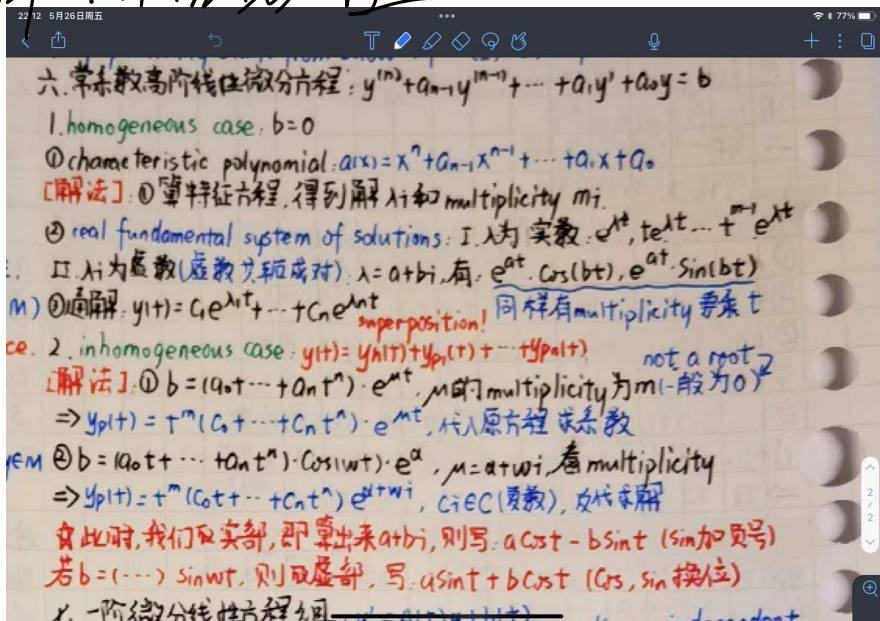 22:12 5月26日周五
77%
六.常系数高阶线性微分方程: y⁽ⁿ⁾+aₙ₋₁y⁽ⁿ⁻¹⁾+…+a₁y'+a₀y=b
1.homogeneous case: b=0
①characteristic polynomial: a(x)=xⁿ+aₙ₋₁xⁿ⁻¹+…+a₁x+a₀
[解法]:①算特征方程,得到解λi和multiplicity mi.
②real fundamental system of solutions: I.λ为实数: e^λt, te^λt … t^m-1 e^λt
II.λi为虚数(虚数共轭成对): λ=a+bi,有: e^at·cos(bt), e^at·sin(bt)
M) ③通解: y(t)=C₁e^λ₁t+…+Cne^λnt 同样有multiplicity要乘t
superposition!
ce. 2.inhomogeneous case: y(t)=yh(t)+yp₁(t)+…+ypn(t)
not a root
[解法]:①b=(a₀t…+antⁿ)·e^μt, μ的multiplicity为m(一般为0)
⇒yp(t)=t^m(C₀+…+Cntⁿ)·e^μt,代入原方程求系数
EM ②b=(a₀t+…+antⁿ)·cos(wt)·e^α, μ=α+wi,看multiplicity
⇒yp(t)=t^m(C₀t+…+Cntⁿ)e^α+wi, Ci∈C(复数),反代求解
☆此时,我们取实部,即算出来a+bi,则写: acost-bsint (sin加负号)
若b=(…)sinwt,则取虚部,写: asint+bcost (cos,sin换位)
一阶微分线性方程组
2
/
2